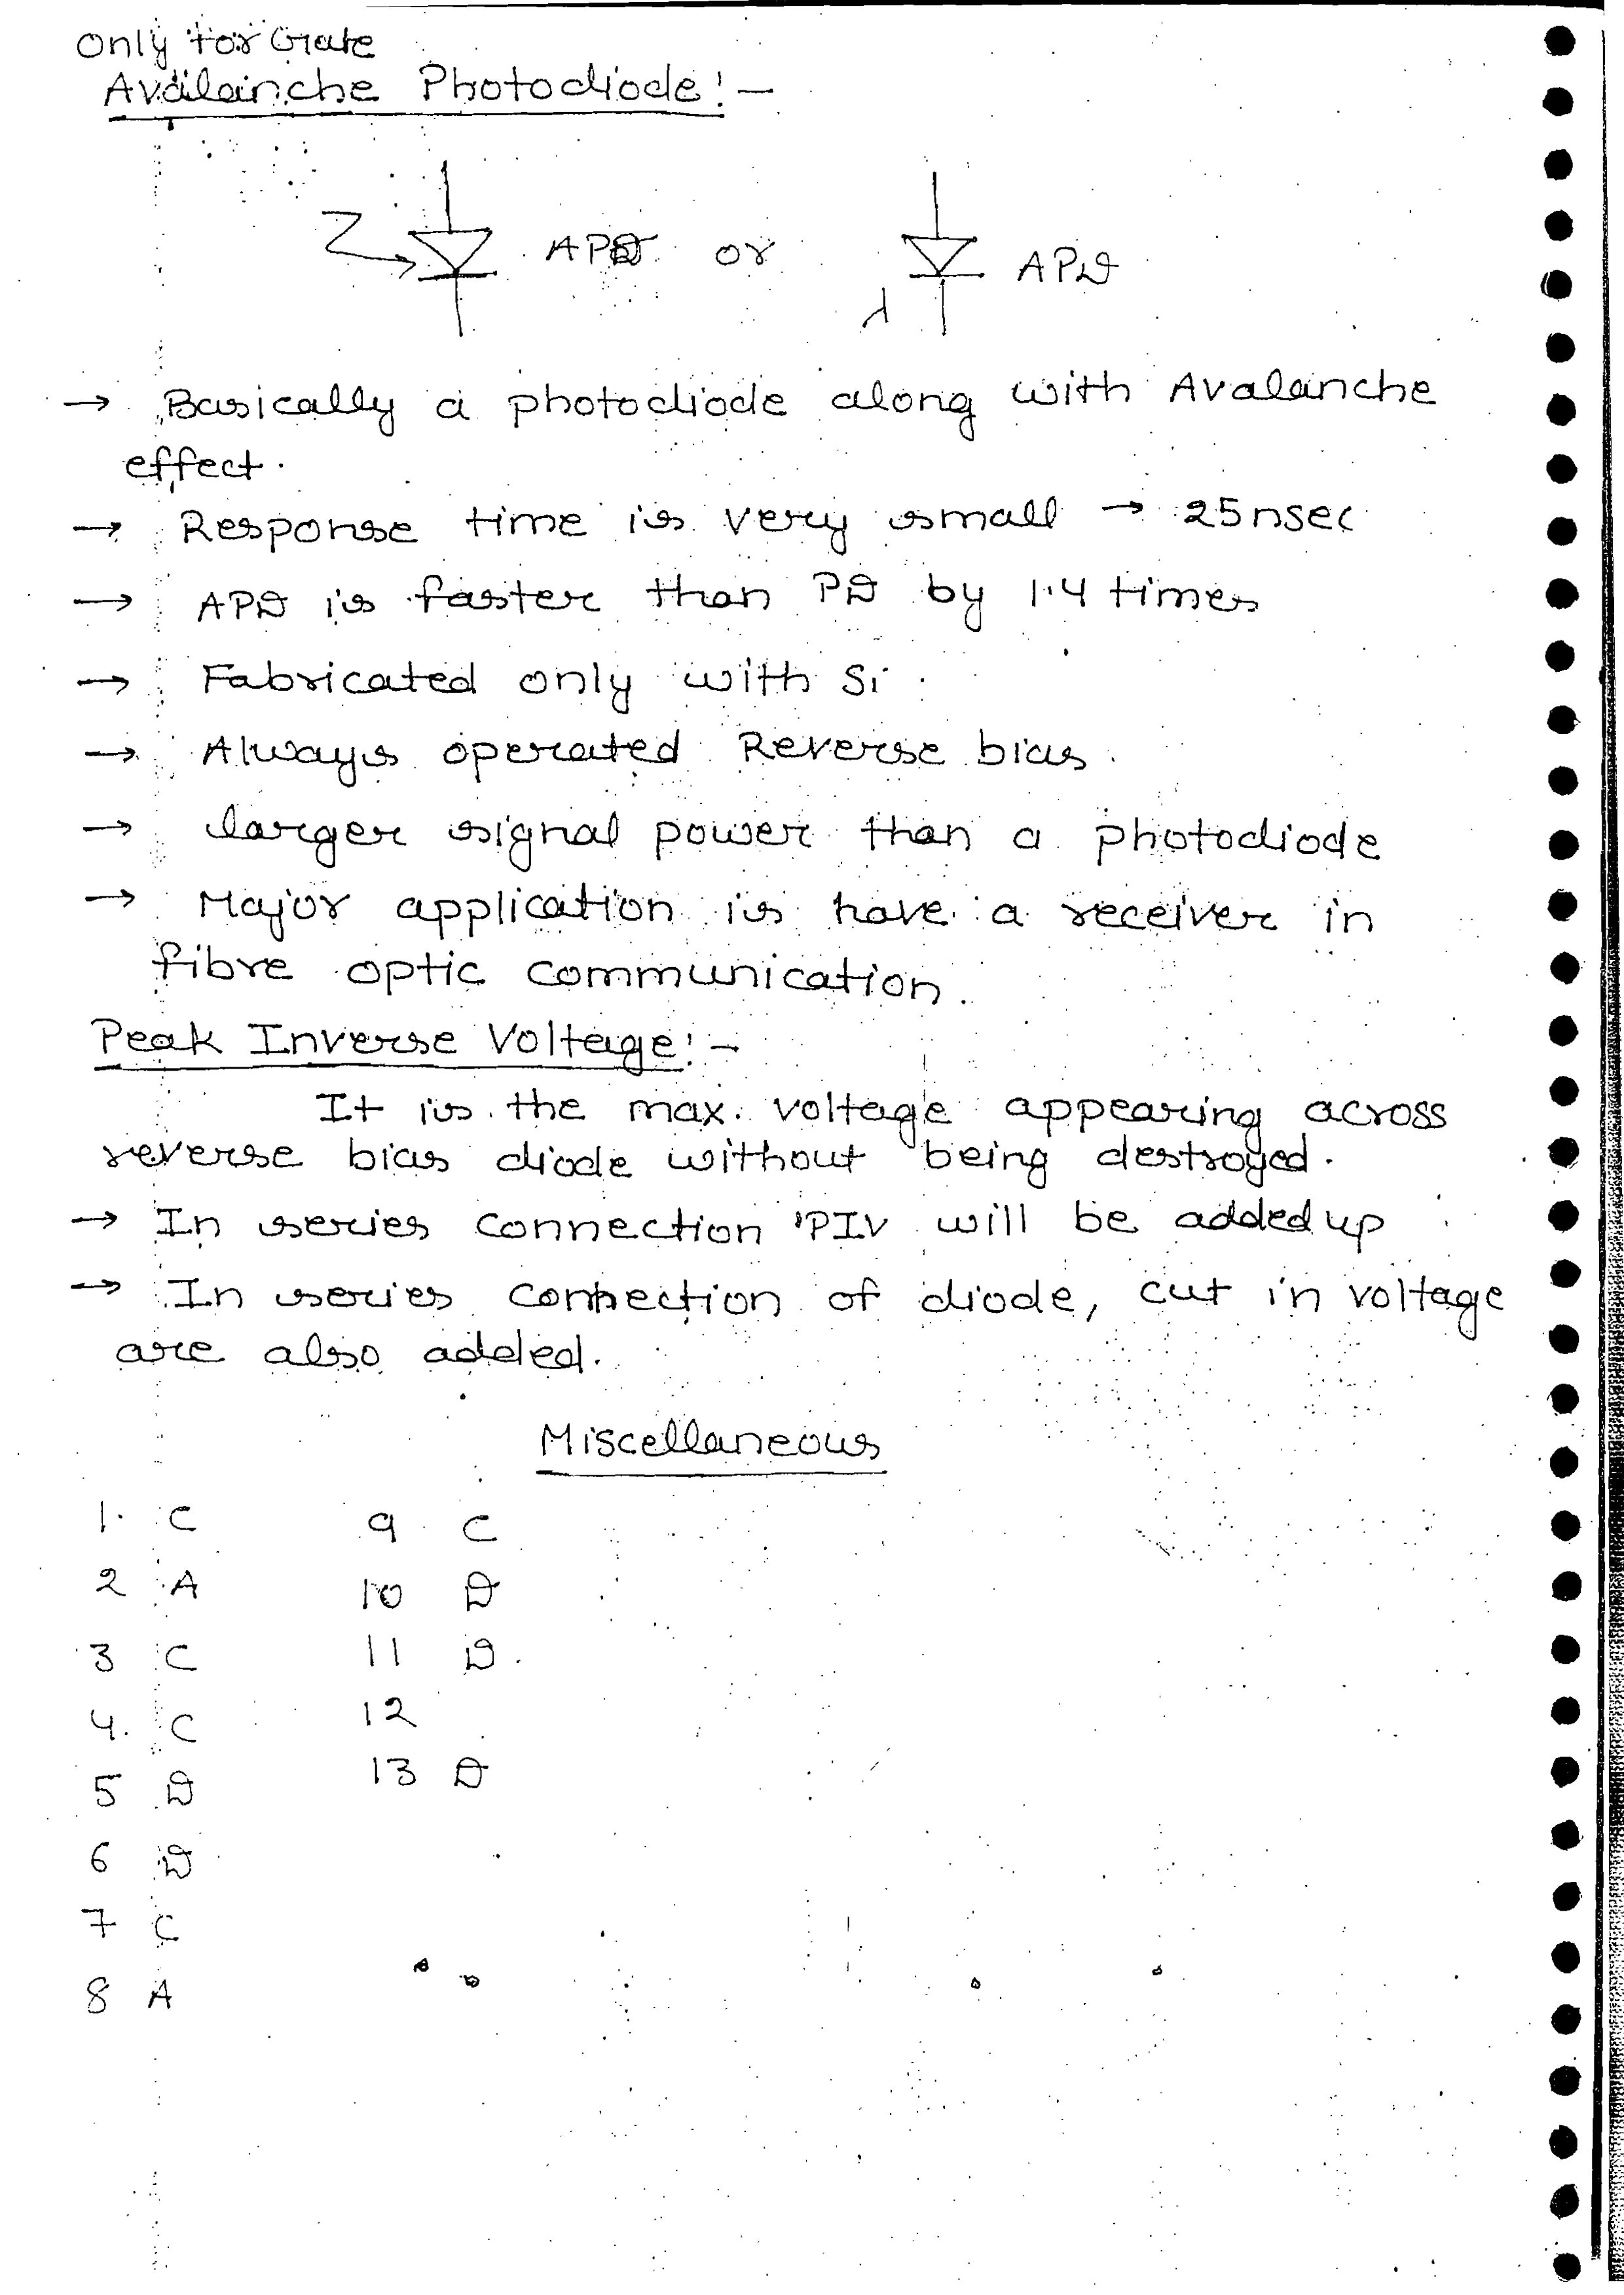 Only for Gate
Avalanche Photodiode:-
APD or APD
λ
→ Basically a photodiode along with Avalanche
effect.
→ Response time is very small → 25nsec
→ APD is faster than PD by 1.4 times
→ Fabricated only with Si.
→ Always operated Reverse bias.
→ larger signal power than a photodiode
→ Major application is have a receiver in
fibre optic communication.
Peak Inverse Voltage:-
It is the max. voltage appearing across
reverse bias diode without being destroyed.
→ In series connection PIV will be added up
→ In series connection of diode, cut in voltage
are also added.
Miscellaneous
1. C 9 C
2 A 10 D
3 C 11 D.
4. C 12
5 D 13 D
6 D
7 C
8 A